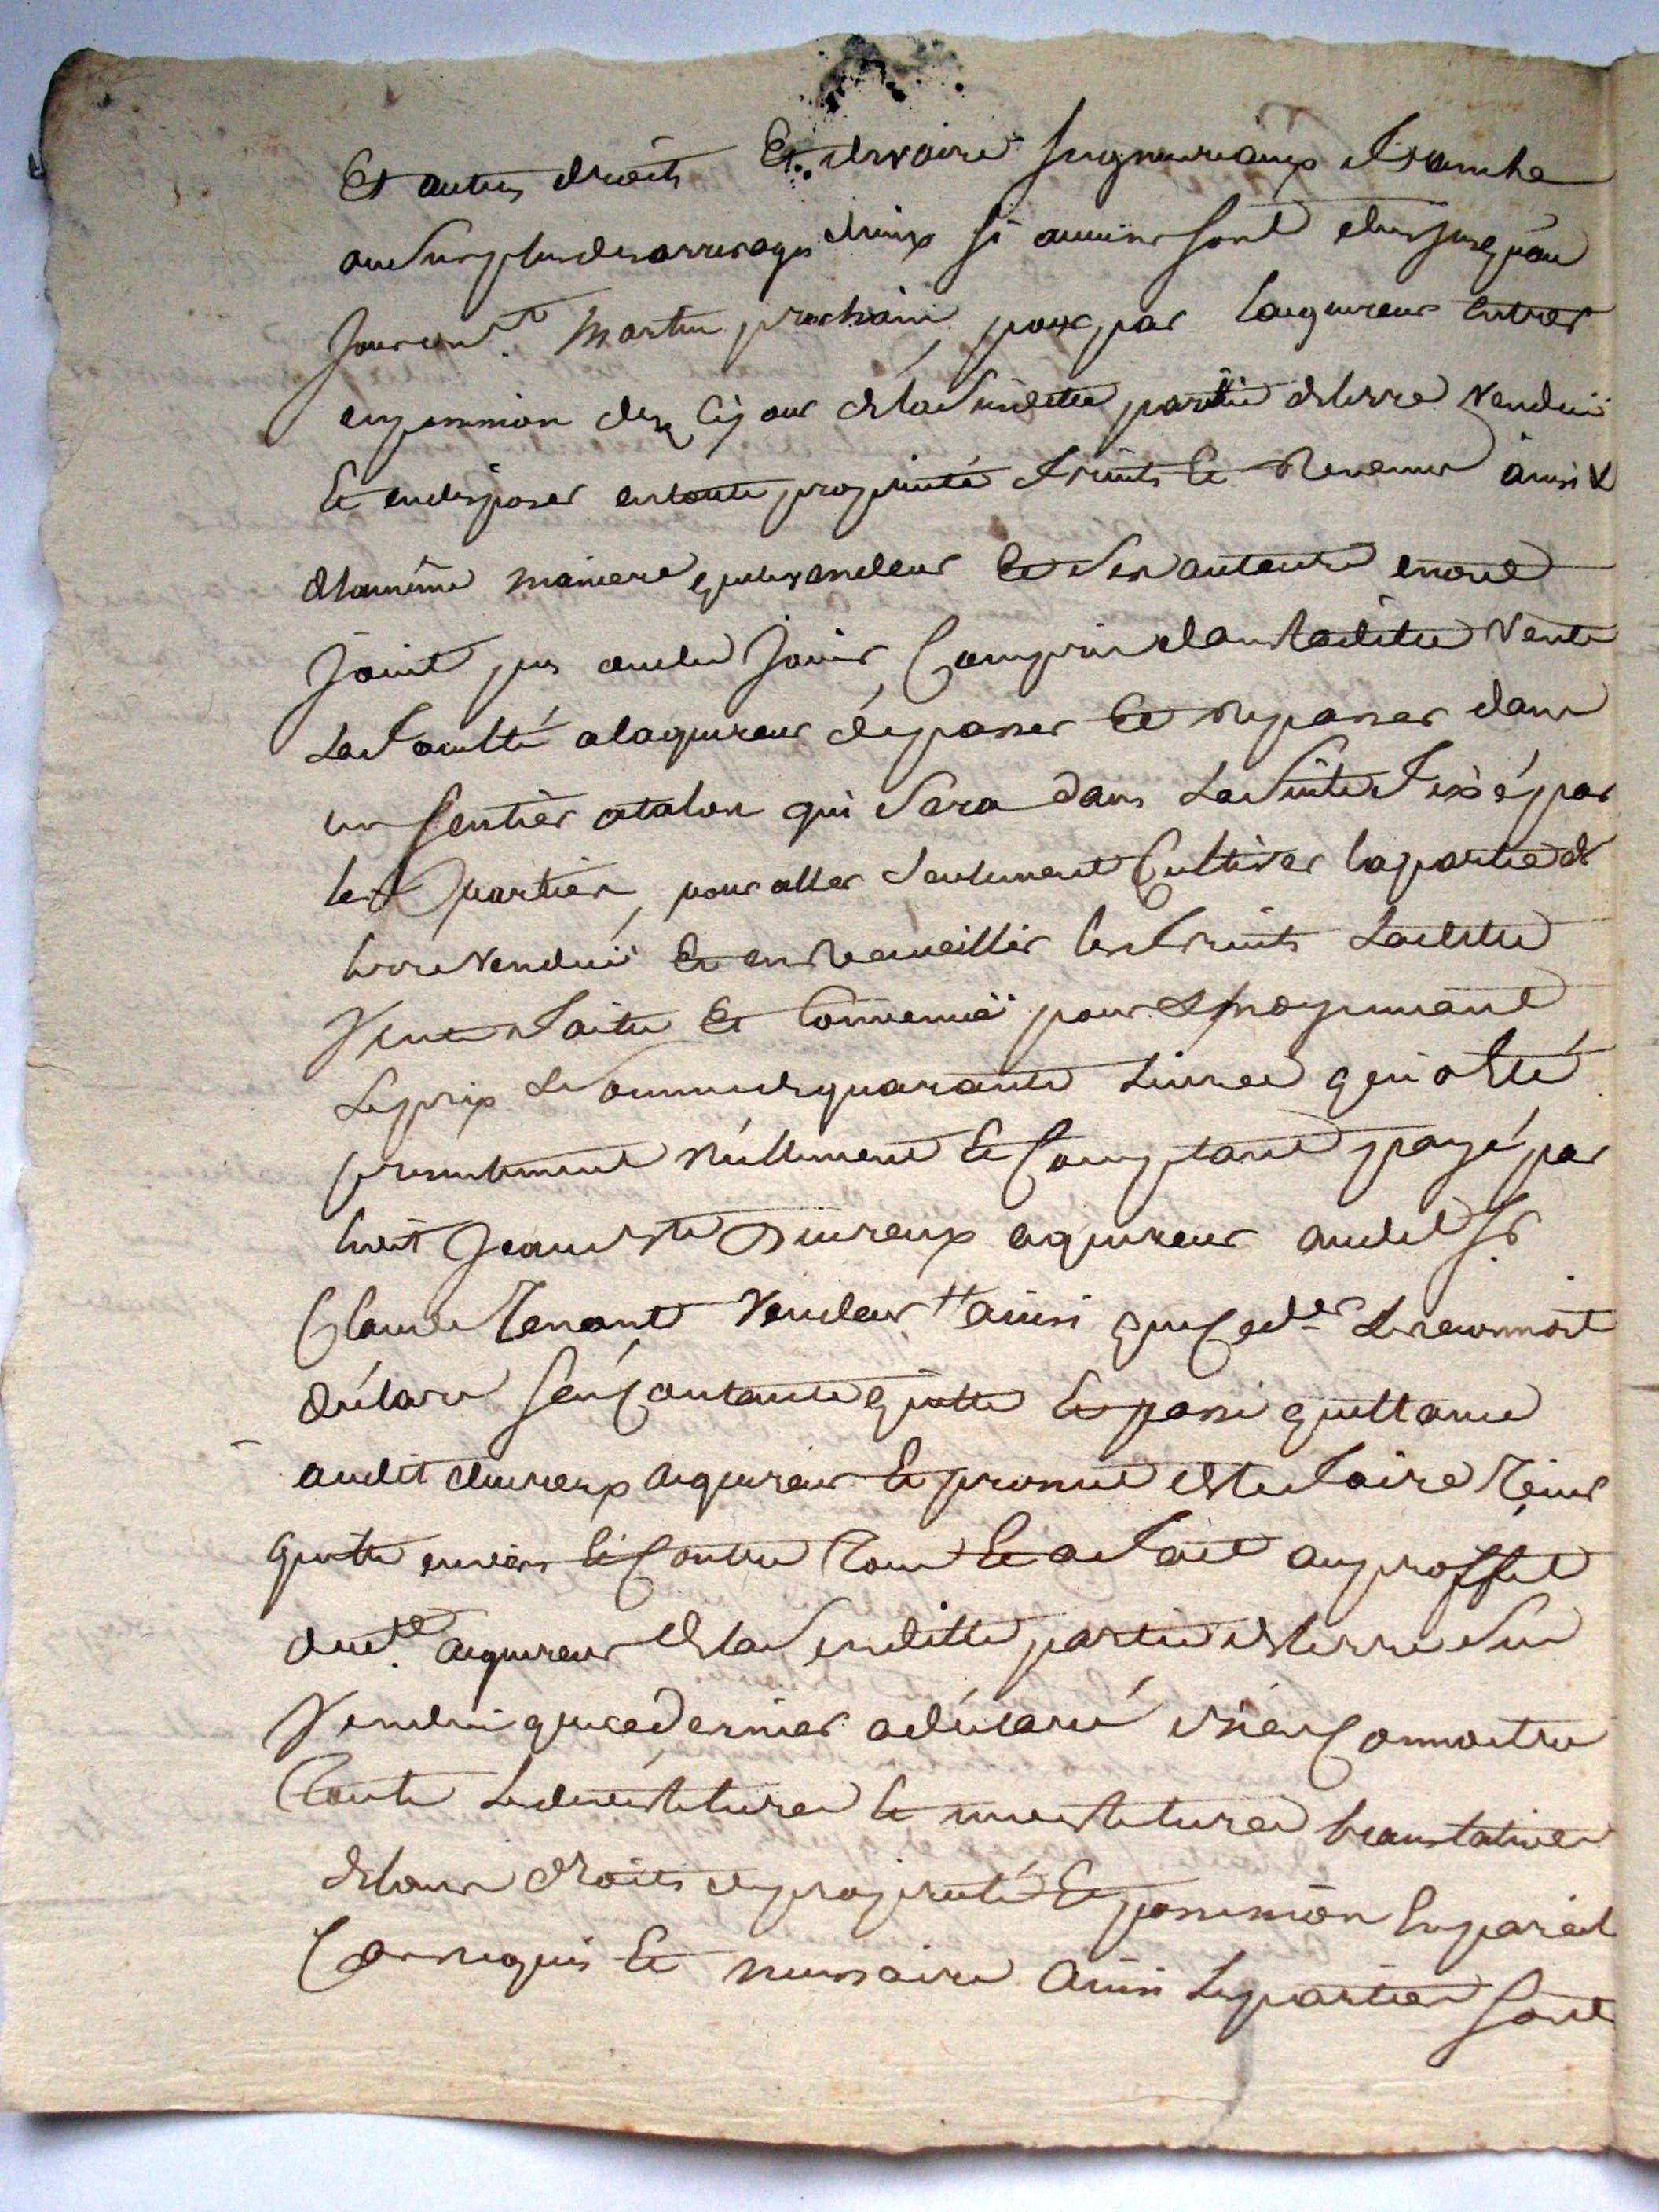 Et autres droits Et devoirs seigneuriaux franche
au surplus des arrerages diceux si aucuns sont dus jusqu'au
jour de St. Martin prochain, pour par laquereur entrer
en possession dez cy jour de la susditte partie de terre vendüe
Et en disposer en toutte proprieté fruits Et Revenus ainsi &
de la même maniere que le vendeur Et ses auteurs en ont
joüit pus ou du joüir, Compris dans laditte Vente
La faculté a laquereur de passer Et repasser dans
un sentier a talon qui sera dans La suitte fixé par
les parties, pour aller seulement Cultiver la partie de
terre vendüe Et en Recueillir les fruits Laditte
Vente faitte Et Convenüe pour & moyennant
Le prix & somme de quarante Livres qui a Eté
presentement réellement Et Comptant payé par
ledit Jean Bte Duireux aquereur audit Sr
Claude Tenant Vendeur ainsi que Ce der Le reconnoit
déclare s'en Contante quitte Et passe quittance
audit duireux aquereur Et promet de le faire Tenir
quitte envers Et Contre Tous Et a fait au proffit
dud. aquereur de la susditte partie de terre sus
Vendüe que ce dernier a déclaré bien Connoitre
Toutte Les devestitures Et investitures translatives
de tous droits de proprieté Et possession En pareil
Cas requis Et necessaire ainsi Les parties sont